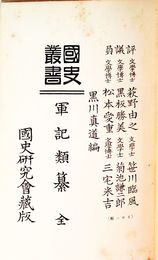 評議員
文學博士 萩野由之 文學士 笹川臨風
文學博士 黒板勝美 文學士 菊池謙二郎
文學博士 松本愛重 文學博士 三宅米吉
黒川眞道編
國史叢書
軍記類纂 全
國史研究會藏版